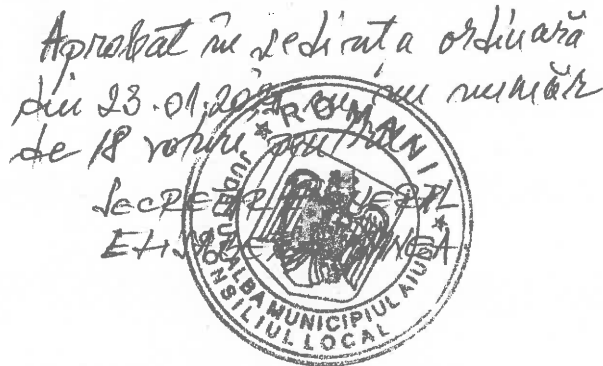 Aprobat în ședința ordinară
din 23.01. cu un număr
de 18 voturi pentru
SECRETAR GENERAL
* ROMÂNIA *
JUDEȚUL ALBA MUNICIPIUL AIUD
CONSILIUL LOCAL